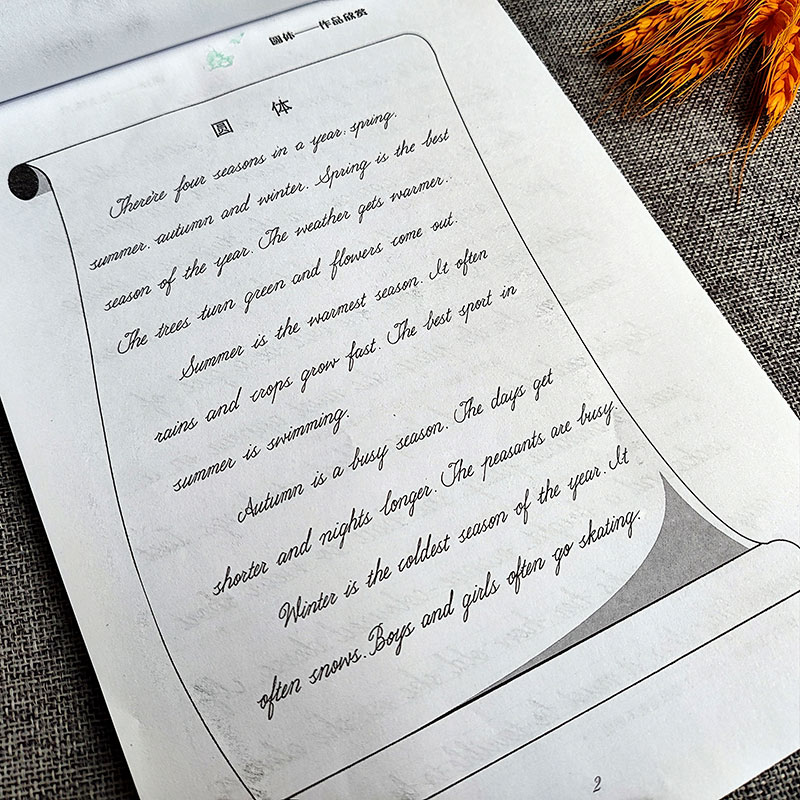 圆体——作品欣赏
圆 体
There're four seasons in a year: spring,
summer, autumn and winter. Spring is the best
season of the year. The weather gets warmer.
The trees turn green and flowers come out.
Summer is the warmest season. It often
rains and crops grow fast. The best sport in
summer is swimming.
Autumn is a busy season. The days get
shorter and nights longer. The peasants are busy.
Winter is the coldest season of the year. It
often snows. Boys and girls often go skating.
2